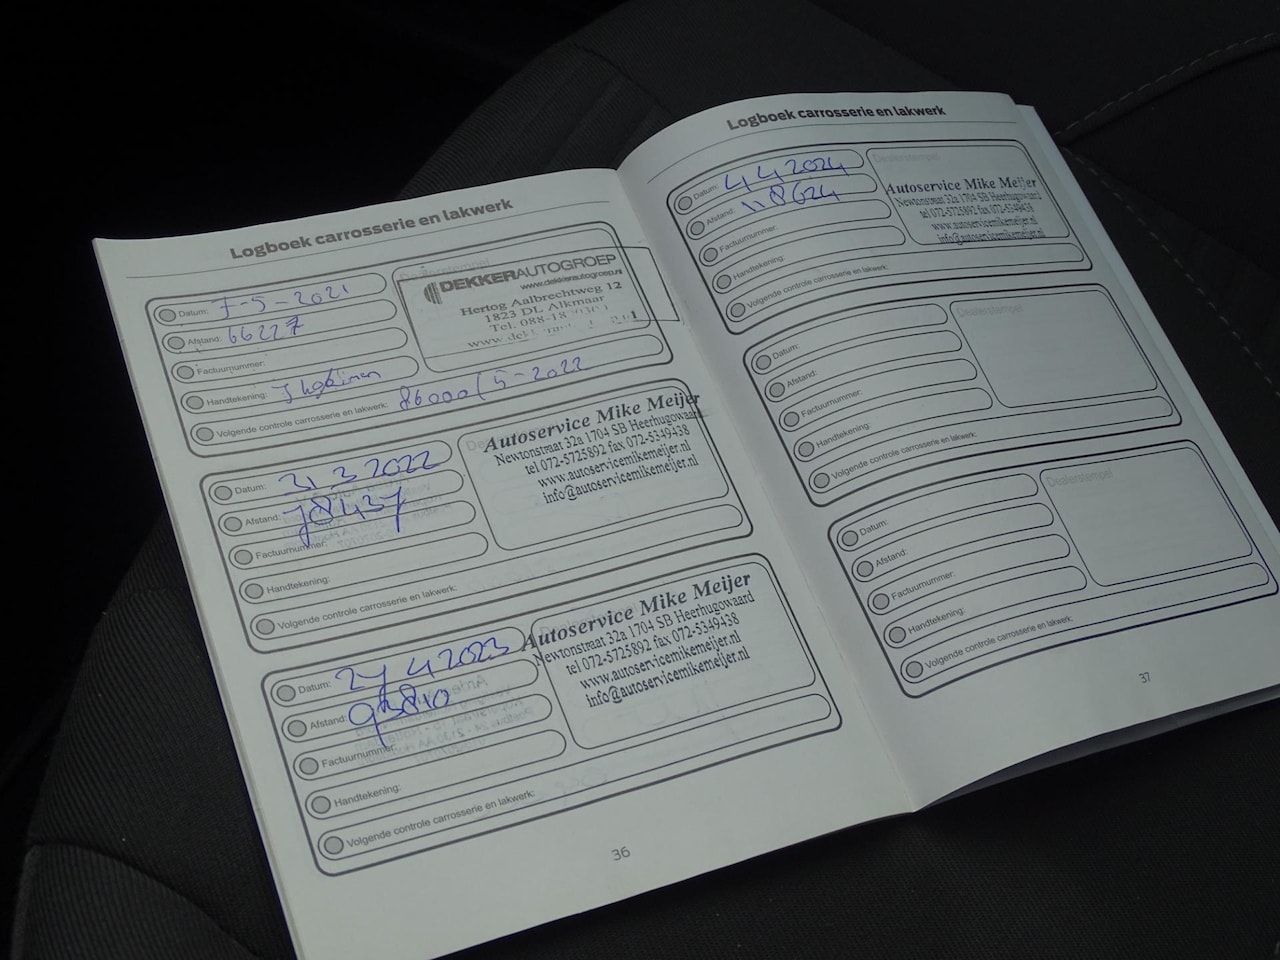 Logboek carrosserie en lakwerk
Datum: 7-5-2021
Afstand: 66227
Factuurnummer:
Handtekening:
Volgende controle carrosserie en lakwerk: 86000 / 5-2022
Dealerstempel
DEKKERAUTOGROEP
www.dekkerautogroep.nl
Hertog Aalbrechtweg 12
1823 DL Alkmaar
Tel. 088-18
Datum: 31 3 2022
Afstand: 78437
Factuurnummer:
Handtekening:
Volgende controle carrosserie en lakwerk:
Autoservice Mike Meijer
Newtonstraat 32a 1704 SB Heerhugowaard
tel 072-5725892 fax 072-5349438
www.autoservicemikemeijer.nl
info@autoservicemikemeijer.nl
Datum: 24 4 2023
Afstand: 93810
Factuurnummer:
Handtekening:
Volgende controle carrosserie en lakwerk:
Autoservice Mike Meijer
Newtonstraat 32a 1704 SB Heerhugowaard
tel 072-5725892 fax 072-5349438
www.autoservicemikemeijer.nl
info@autoservicemikemeijer.nl
36
Logboek carrosserie en lakwerk
Datum: 4 4 2024
Afstand: 118624
Factuurnummer:
Handtekening:
Volgende controle carrosserie en lakwerk:
Dealerstempel
Autoservice Mike Meijer
Newtonstraat 32a 1704 SB Heerhugowaard
tel 072-5725892 fax 072-5349438
www.autoservicemikemeijer.nl
info@autoservicemikemeijer.nl
Datum:
Afstand:
Factuurnummer:
Handtekening:
Volgende controle carrosserie en lakwerk:
Dealerstempel
Datum:
Afstand:
Factuurnummer:
Handtekening:
Volgende controle carrosserie en lakwerk:
Dealerstempel
37